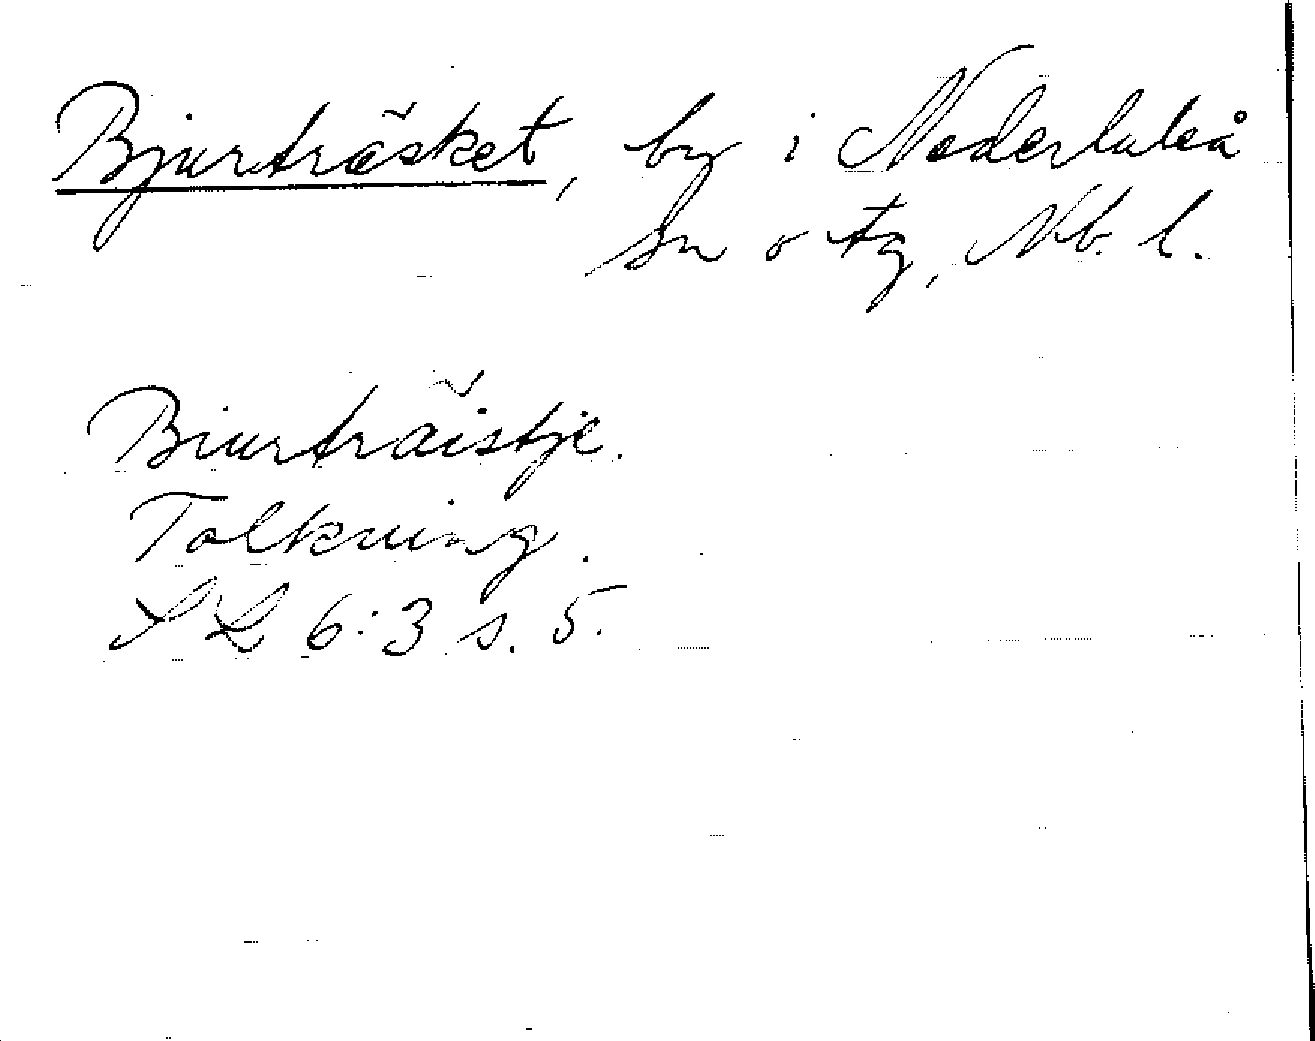 Bjurträsket, by i Nederluleå
sn o tg, Nb. l.
Biurträistje.
Tolkning.
SL 6:3 s. 5.